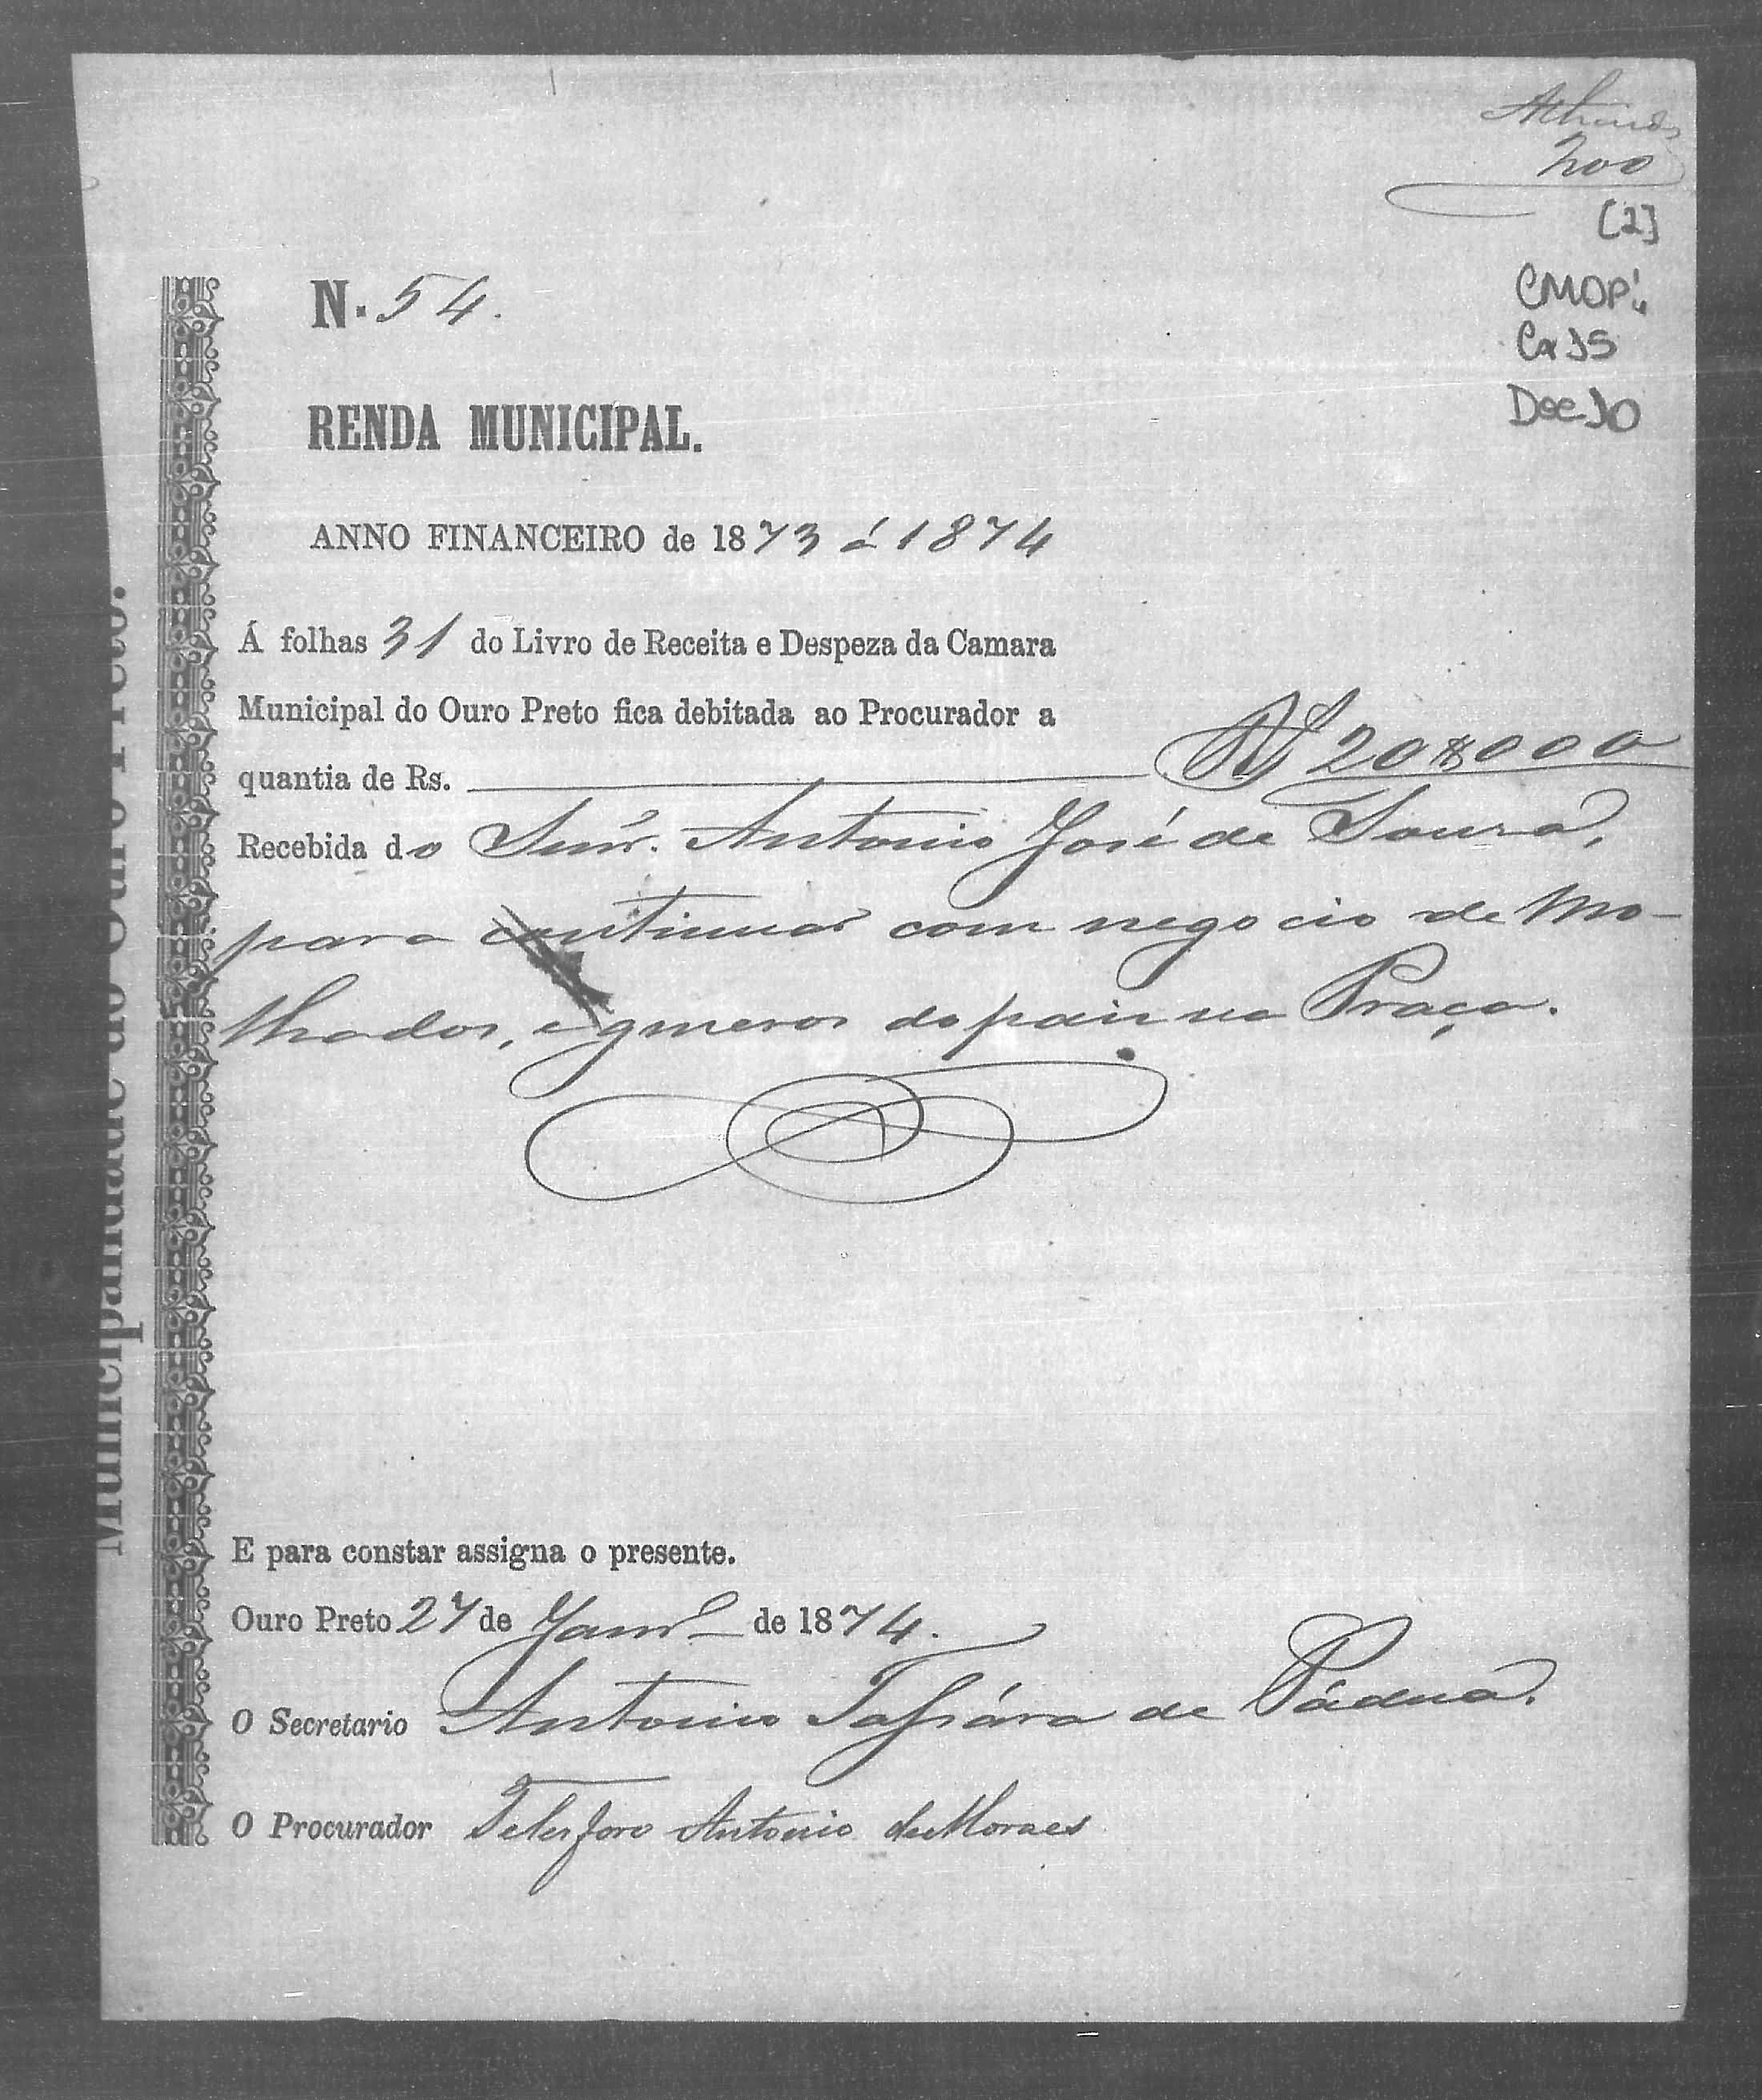 200
[2]
CMOP
Cx 15
Doc 10
N. 54.
RENDA MUNICIPAL.
ANNO FINANCEIRO de 1873 á 1874
Á folhas 31 do Livro de Receita e Despeza da Camara
Municipal do Ouro Preto fica debitada ao Procurador a
quantia de Rs. Rs 20$000
Recebida do Snr. Antonio José de Souza,
para continuar com negocio de Mo-
lhados, e generos do pais na Praça.
E para constar assigna o presente.
Ouro Preto 27 de Janr.o de 1874.
O Secretario Antonio de Pádua.
O Procurador Telesforo Antonio de Moraes
Municipalidade do Ouro Preto.